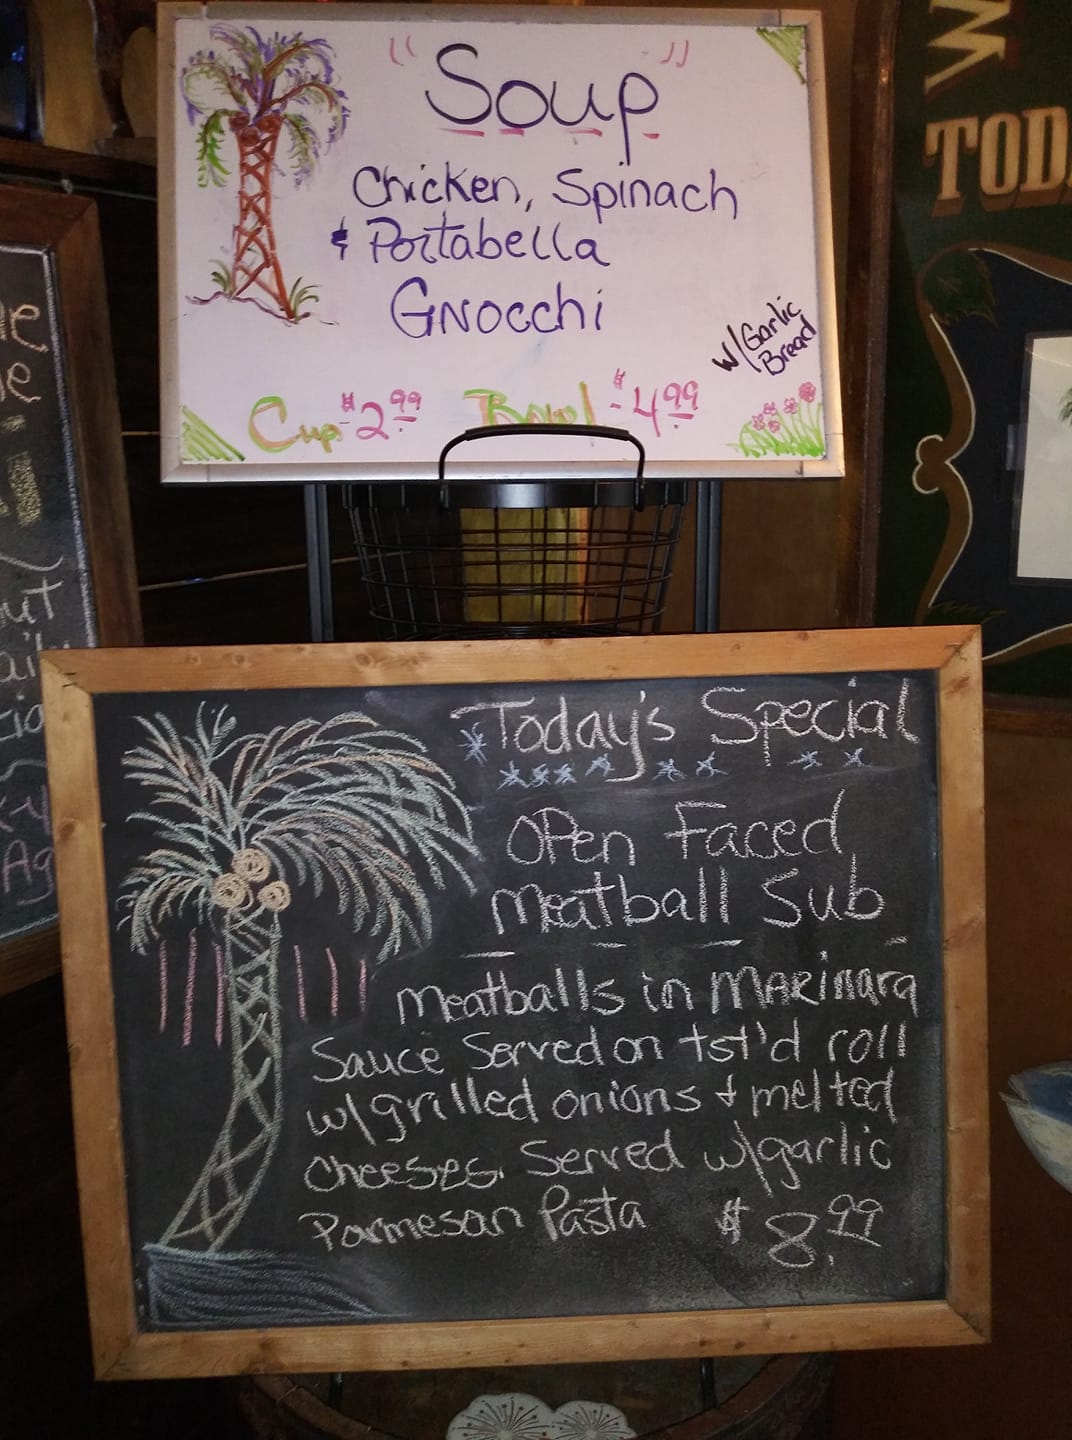 "Soup"
Chicken, Spinach
& Portabella
Gnocchi
w/Garlic
Bread
Cup $2.99 Bowl $4.99
TOD
Today's Special
Open Faced
Meatball Sub
Meatballs in Marinara
Sauce Served on tst'd roll
w/grilled onions & melted
cheeses. Served w/garlic
Parmesan Pasta $8.99